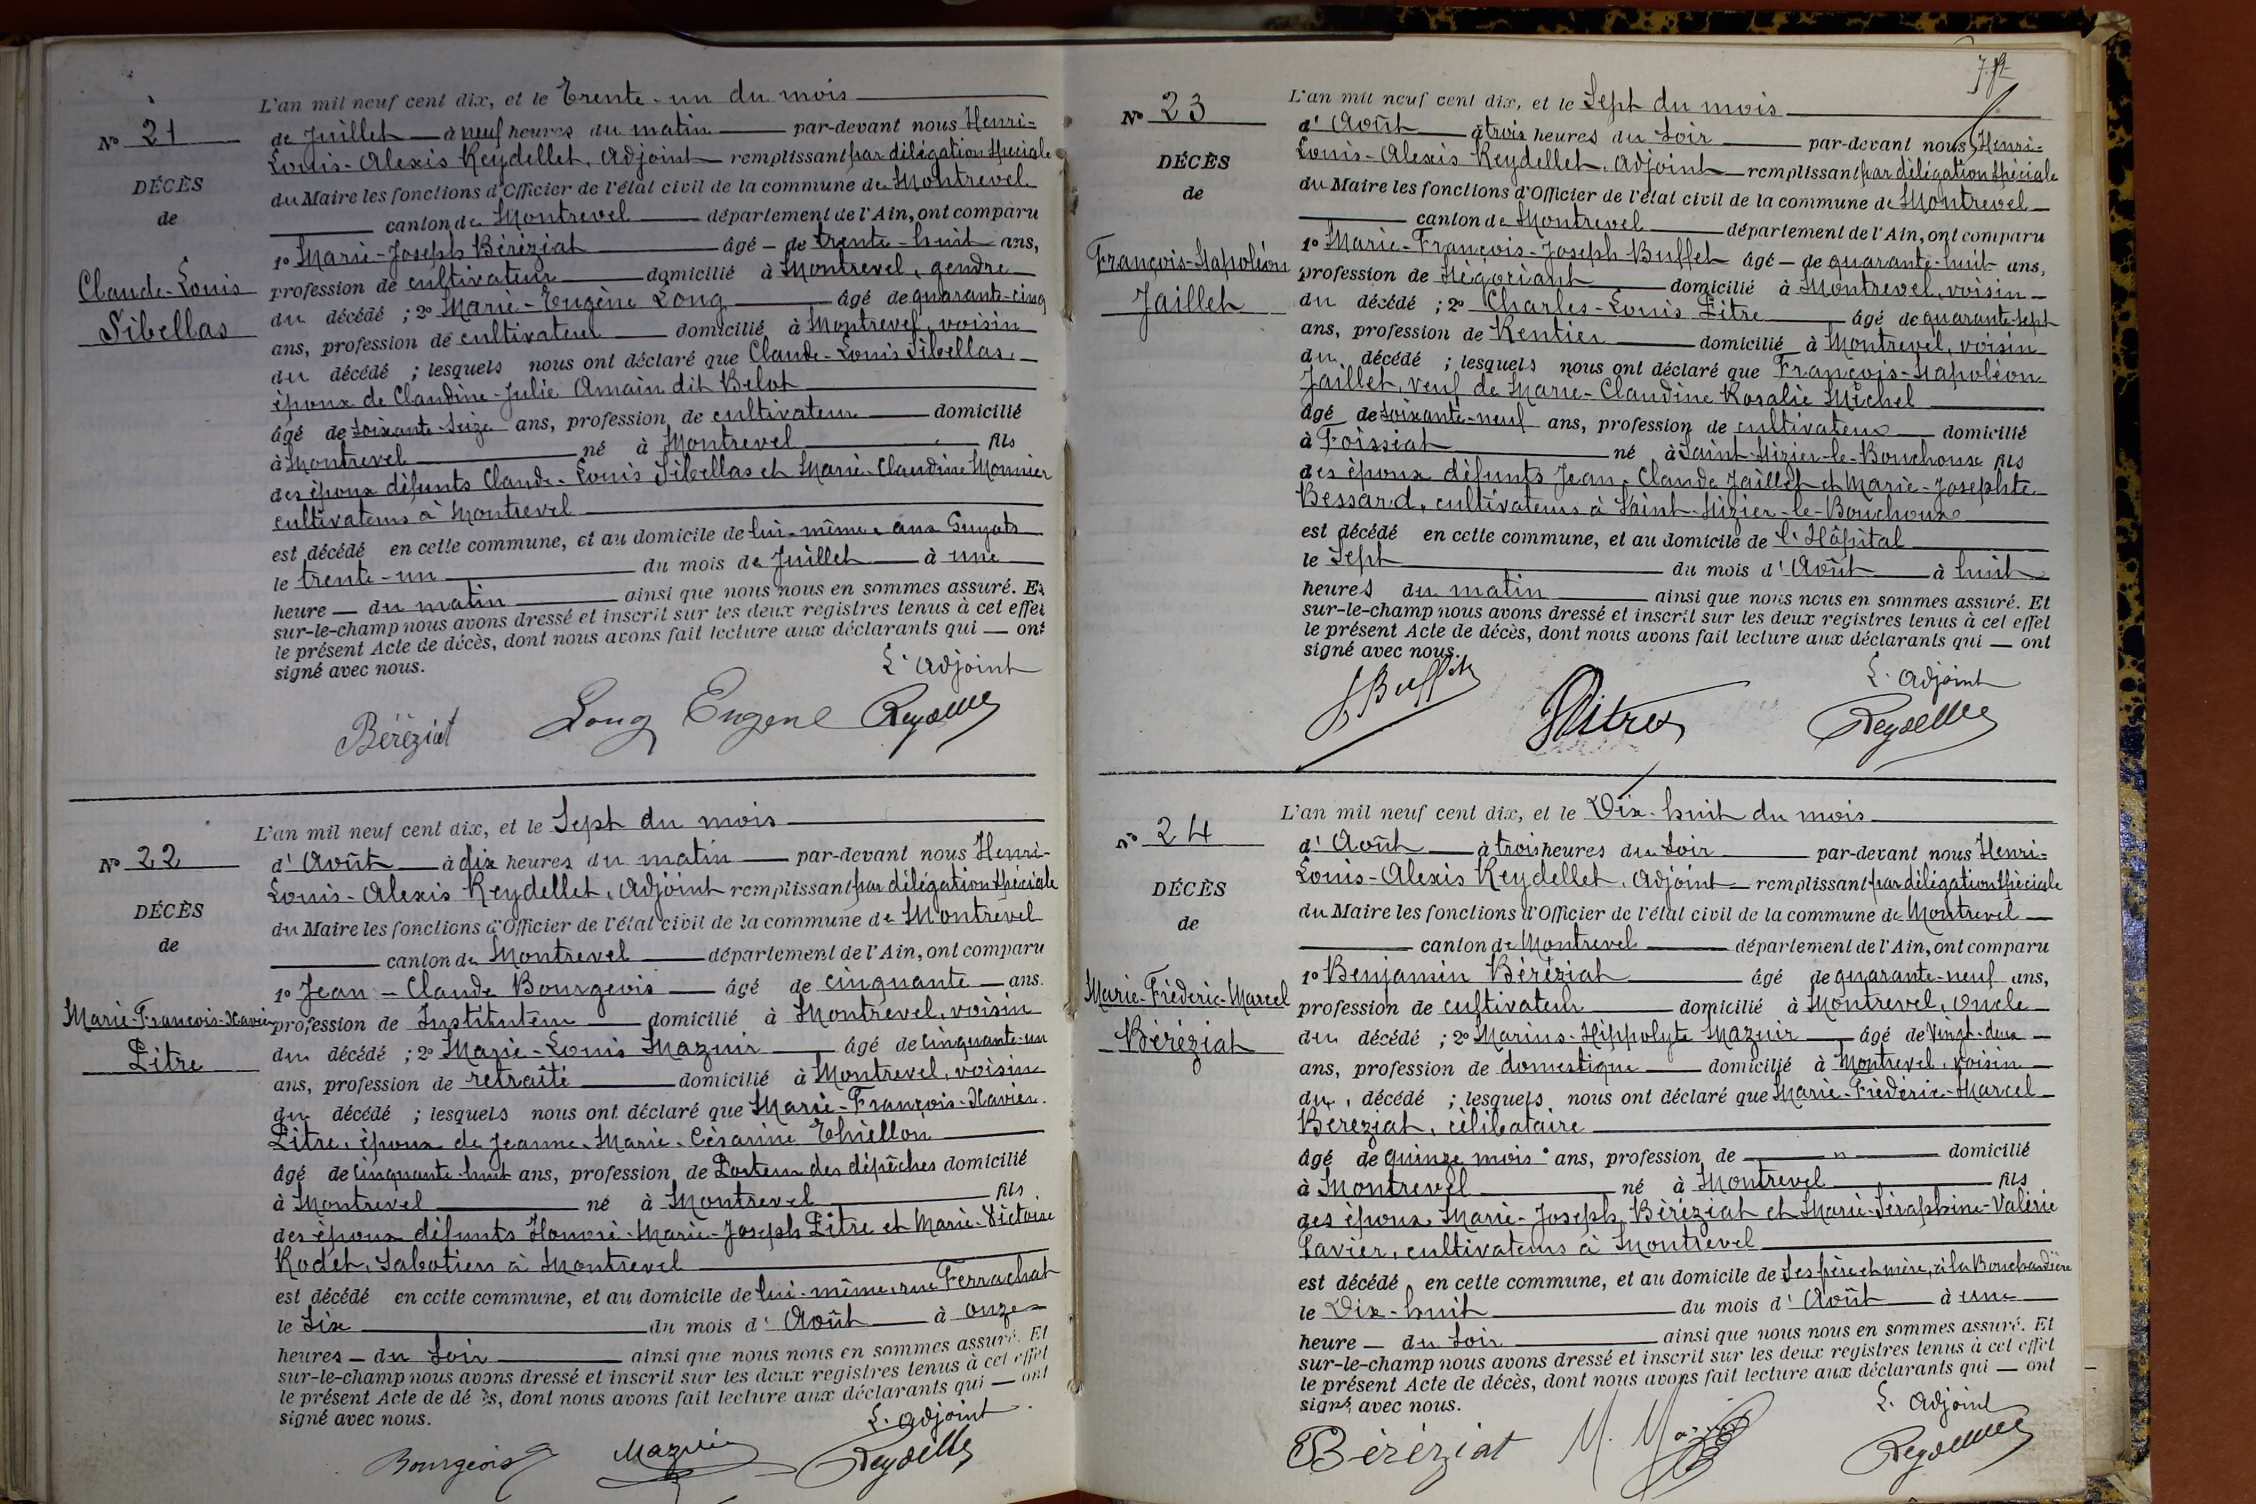 L'an mil neuf cent dix, et le Trente-un du mois
Nº 21
de Juillet à neuf heures du matin par-devant nous Henri-
Louis-Alexis Reydellet, Adjoint remplissant par délégation spéciale
DÉCÈS
du Maire les fonctions d'Officier de l'état civil de la commune de Montrevel
de
canton de Montrevel département de l'Ain, ont comparu
1º Marie-Joseph Béréziat âgé de trente-huit ans,
Claude-Louis
profession de cultivateur domicilié à Montrevel, gendre
du décédé ; 2º Marie-Eugène Long âgé de quarante-cinq
Sibellas
ans, profession de cultivateur domicilié à Montrevel, voisin
du décédé ; lesquels nous ont déclaré que Claude-Louis Sibellas,
époux de Claudine-Julie Amain dit Belot
âgé de soixante-seize ans, profession de cultivateur domicilié
à Montrevel né à Montrevel fils
des époux défunts Claude-Louis Sibellas et Marie-Claudine Monnier
cultivateurs à Montrevel
est décédé en cette commune, et au domicile de lui-même, aux Guyots
le trente-un du mois de Juillet à une
heure du matin ainsi que nous nous en sommes assuré. Et
sur-le-champ nous avons dressé et inscrit sur les deux registres tenus à cet effet
le présent Acte de décès, dont nous avons fait lecture aux déclarants qui ont
signé avec nous.
L'Adjoint
Béréziat Long Eugene Reydellet
L'an mil neuf cent dix, et le Sept du mois
Nº 22
d'Août à dix heures du matin par-devant nous Henri-
Louis-Alexis Reydellet, Adjoint remplissant par délégation spéciale
DÉCÈS
du Maire les fonctions d'Officier de l'état civil de la commune de Montrevel
de
canton de Montrevel département de l'Ain, ont comparu
1º Jean-Claude Bourgeois âgé de cinquante ans.
Marie-François-Xavier
profession de Instituteur domicilié à Montrevel, voisin
du décédé ; 2º Marie-Louis Mazuir âgé de cinquante-un
Pitre
ans, profession de retraité domicilié à Montrevel, voisin
du décédé ; lesquels nous ont déclaré que Marie-François-Xavier
Pitre, époux de Jeanne-Marie-Césarine Thiellon
âgé de cinquante-huit ans, profession de Porteur des dépêches domicilié
à Montrevel né à Montrevel fils
des époux défunts Honoré-Marie-Joseph Pitre et Marie-Victoire
Rodet, Sabotiers à Montrevel
est décédé en cette commune, et au domicile de lui-même, rue Ferrachat
le Six du mois d'Août à onze
heures du soir ainsi que nous nous en sommes assuré. Et
sur-le-champ nous avons dressé et inscrit sur les deux registres tenus à cet effet
le présent Acte de dé ès, dont nous avons fait lecture aux déclarants qui ont
signé avec nous.
L'adjoint
Bourgeois Mazuir Reydellet
L'an mil neuf cent dix, et le Sept du mois
Nº 23
d'Août à trois heures du soir par-devant nous Henri-
Louis-Alexis Reydellet, Adjoint remplissant par délégation spéciale
DÉCÈS
du Maire les fonctions d'Officier de l'état civil de la commune de Montrevel
de
canton de Montrevel département de l'Ain, ont comparu
1º Marie-François-Joseph Buffet âgé de quarante-huit ans,
François-Napoléon
profession de Négociant domicilié à Montrevel, voisin
Jaillet
du décédé ; 2º Charles-Louis Pitre âgé de quarante-sept
ans, profession de Rentier domicilié à Montrevel, voisin
du décédé ; lesquels nous ont déclaré que François-Napoléon
Jaillet, veuf de Marie-Claudine Rosalie Michel
âgé de soixante-neuf ans, profession de cultivateur domicilié
à Foissiat né à Saint-Nizier-le-Bouchoux fils
des époux défunts Jean-Claude Jaillet et Marie-Josephte
Bessard, cultivateurs à Saint-Nizier-le-Bouchoux
est décédé en cette commune, et au domicile de l'Hôpital
le Sept du mois d'Août à huit
heures du matin ainsi que nous nous en sommes assuré. Et
sur-le-champ nous avons dressé et inscrit sur les deux registres tenus à cet effet
le présent Acte de décès, dont nous avons fait lecture aux déclarants qui ont
signé avec nous.
L'adjoint
JBuffet Pitre Reydellet
L'an mil neuf cent dix, et le Dix-huit du mois
Nº 24
d'Août à trois heures du soir par-devant nous Henri-
Louis-Alexis Reydellet, Adjoint remplissant par délégation spéciale
DÉCÈS
du Maire les fonctions d'Officier de l'état civil de la commune de Montrevel
de
canton de Montrevel département de l'Ain, ont comparu
1º Benjamin Béréziat âgé de quarante-neuf ans,
Marie-Fréderic-Marcel
profession de cultivateur domicilié à Montrevel, oncle
Béréziat
du décédé ; 2º Marius-Hippolyte Mazuir âgé de vingt-deux
ans, profession de domestique domicilié à Montrevel, voisin
du décédé ; lesquels nous ont déclaré que Marie-Fréderic-Marcel
Béréziat, célibataire
âgé de quinze mois ans, profession de " domicilié
à Montrevel né à Montrevel fils
des époux Marie-Joseph Béréziat et Marie-Séraphine-Valérie
Pavier, cultivateurs à Montrevel
est décédé en cette commune, et au domicile de ses père et mère, à la Bouchardière
le Dix-huit du mois d'Août à une
heure du soir ainsi que nous nous en sommes assuré. Et
sur-le-champ nous avons dressé et inscrit sur les deux registres tenus à cet effet
le présent Acte de décès, dont nous avons fait lecture aux déclarants qui ont
signé avec nous.
L'adjoint
Béréziat M. Mazuir Reydellet